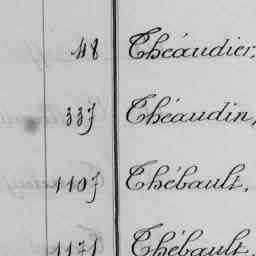 48 Théaudier.
337 Théaudin,
1107 Thébault,
1171 Thébault.